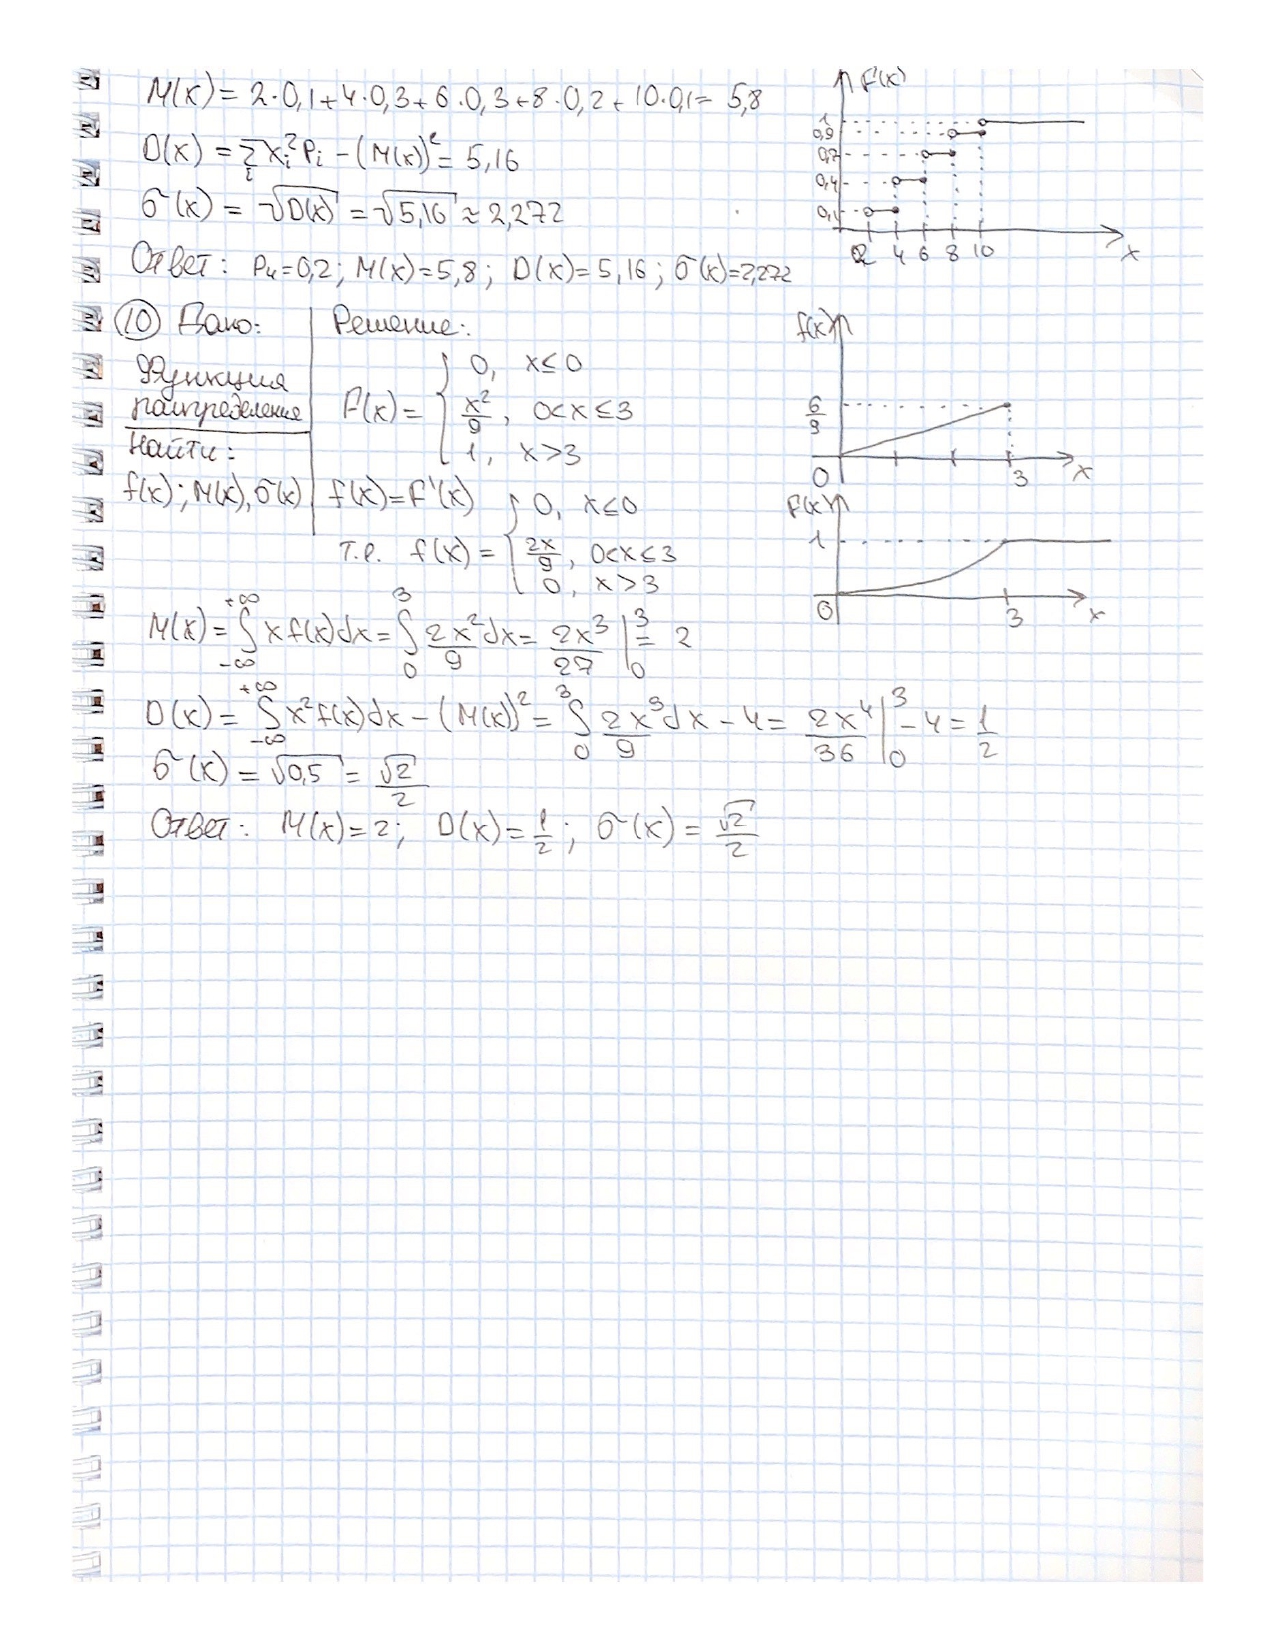 M(x) = 2·0,1+4·0,3+6·0,3+8·0,2+10·0,1= 5,8
D(x) = Σ xᵢ²Pᵢ − (M(x))² = 5,16
i
σ(x) = √D(x) = √5,16 ≈ 2,272
Ответ: P₄=0,2; M(x)=5,8; D(x)=5,16; σ(x)=2,272
F(x)
1
0,9
0,7
0,4
0,1
2 4 6 8 10
x
10 Дано:
Функция
распределения
Найти:
f(x); M(x), σ(x)
Решение:
F(x) = { 0, x≤0
x²/9, 0<x≤3
1, x>3
f(x)=F'(x)
т.е. f(x) = { 0, x≤0
2x/9, 0<x≤3
0, x>3
f(x)
6/9
0 3 x
F(x)
1
0 3 x
M(x) = ∫₋∞⁺∞ x f(x)dx = ∫₀³ 2x²/9 dx = 2x³/27 |₀³ = 2
D(x) = ∫₋∞⁺∞ x² f(x)dx − (M(x))² = ∫₀³ 2x³/9 dx − 4 = 2x⁴/36 |₀³ − 4 = 1/2
σ(x) = √0,5 = √2/2
Ответ: M(x)=2; D(x)=1/2; σ(x) = √2/2